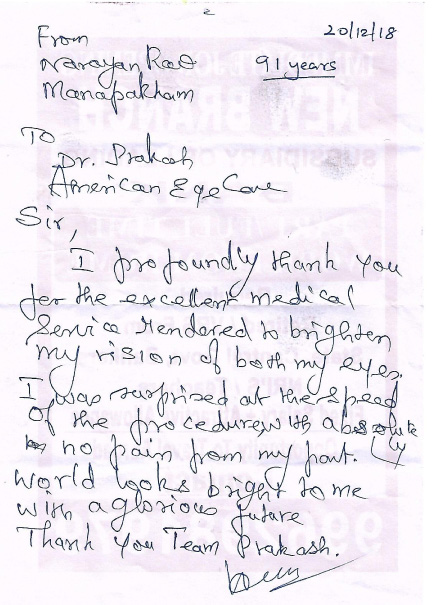 20/12/18
From
Narayan Rao 91 years
Manapakkam
To
Dr. Prakash
American Eye Care
Sir,
I profoundly thank you
for the excellent medical
Service rendered to brighten
my vision of both my eyes.
I was surprised at the speed
of the procedure, with absolutely
no pain from my part.
World looks bright to me
with a glorious future
Thank you Team Prakash.